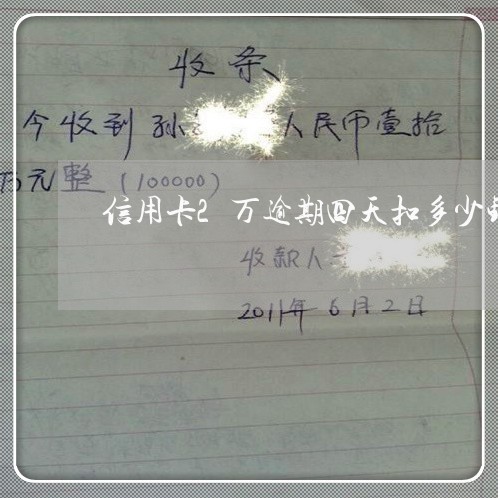 收条
今收到孙 人民币壹拾
万元整（100000）
信用卡2 万逾期四天扣多少
收款人
2011年6月2日